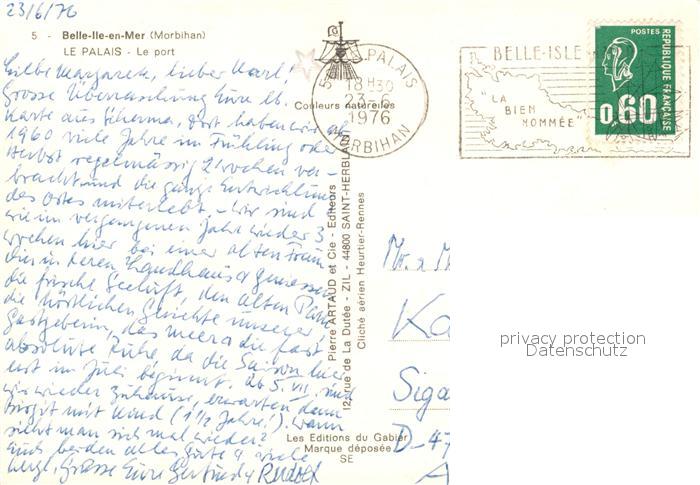 23/6/76
5 - Belle-Ile-en-Mer (Morbihan)
LE PALAIS - Le port
Couleurs naturelles
Liebe Margarete, lieber Karl!
Grosse Überraschung Eure lb.
Karte aus . Dort haben wir ab
1960 viele Jahre im Frühling oder
Herbst regelmässig 2 Wochen ver-
bracht und die ganze Entwicklung
des Ortes miterlebt. - Wir sind
wie im vergangenen Jahr wieder 3
Wochen hier bei einer alten Freun-
din in deren Landhaus & geniessen
die frische Seeluft, den alten Park
die köstlichen Gerichte unserer
Gastgeberin, das Meer & die fast
absolute Ruhe, da die Saison hier
erst im Juli beginnt. Ab 5. VII. sind
wir wieder Zuhause, erwarten dann
Birgit mit Kind (1 1/2 Jahre!). Wann
sieht man sich mal wieder?
Euch beiden alles Gute & viele
herzl. Grüsse Eure Gertrud & Rudolf
LE PALAIS
18 H30
23 - 6
1976
MORBIHAN
BELLE-ISLE
"LA
BIEN
NOMMÉE"
POSTES
REPUBLIQUE FRANÇAISE
0,60
Pierre ARTAUD et Cie - Editeurs
12, rue de La Dutée - ZIL - 44800 SAINT-HERBLAIN
Cliché aérien Heurtier-Rennes
Les Editions du Gabier
Marque déposée
SE
Mr. & M
Ka
Siga
D-47
A
privacy protection
Datenschutz